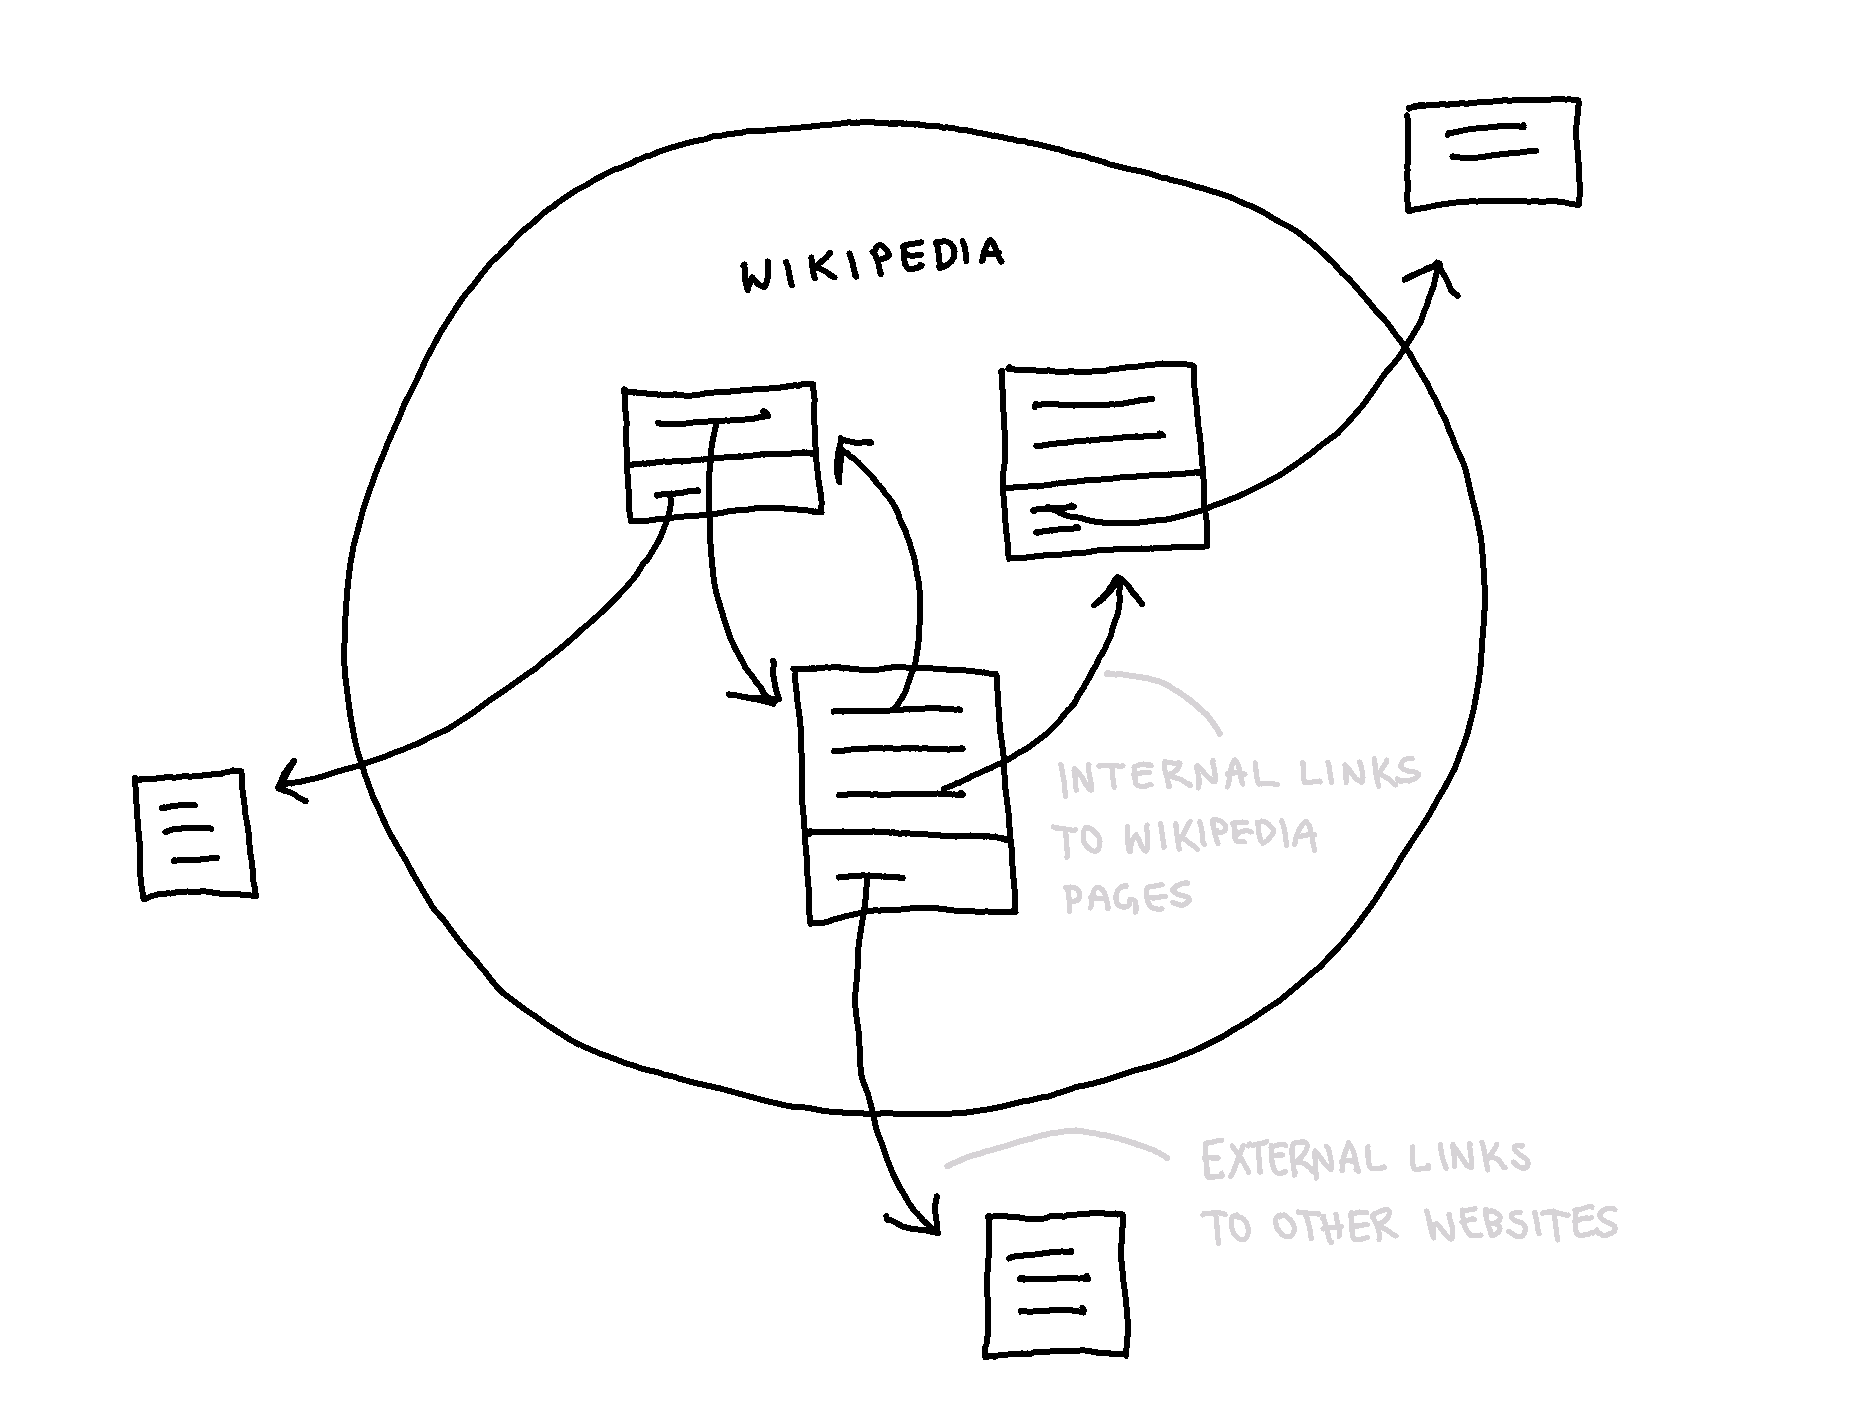 WIKIPEDIA
INTERNAL LINKS
TO WIKIPEDIA
PAGES
EXTERNAL LINKS
TO OTHER WEBSITES